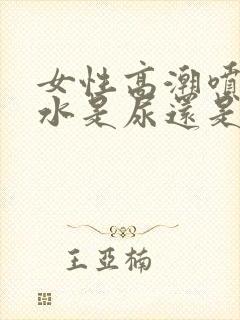 女性高潮噴
水是尿還是
王亞楠